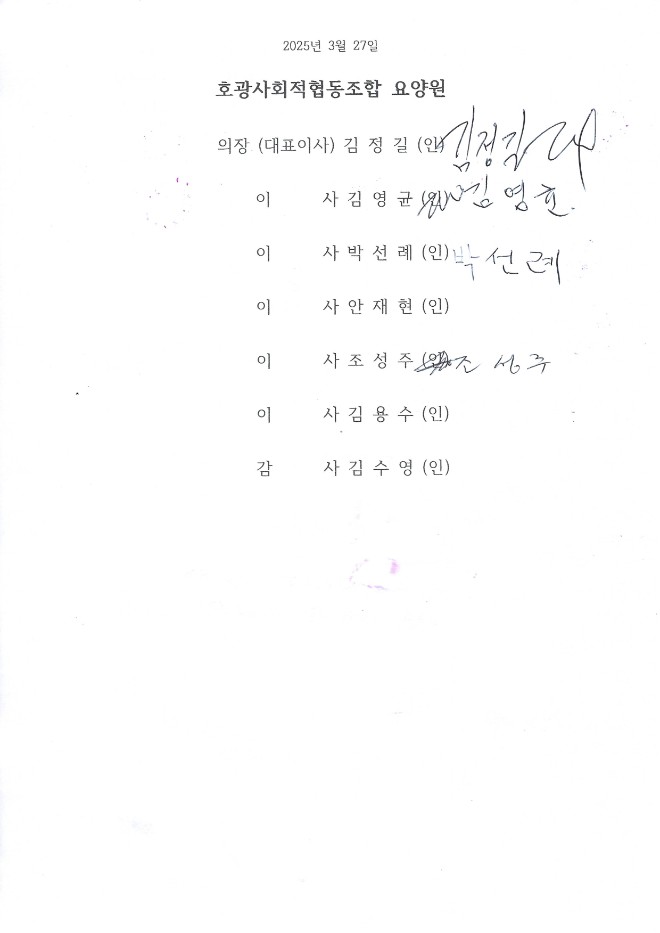 2025년 3월 27일
호광사회적협동조합 요양원
의장 (대표이사) 김 정 길 (인) 김정길
이 사 김 영 균 (인) 김 영
이 사 박 선 례 (인) 박 선 례
이 사 안 재 현 (인)
이 사 조 성 주 (인) 조 성 주
이 사 김 용 수 (인)
감 사 김 수 영 (인)